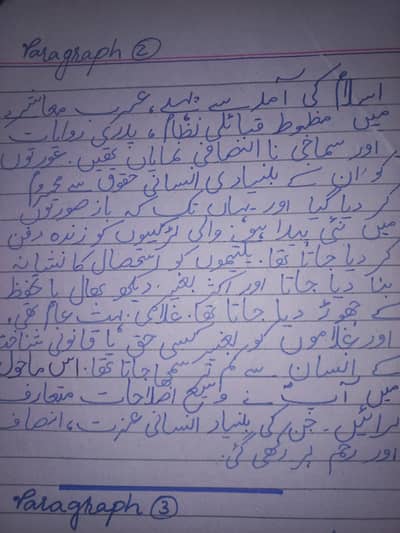 Paragraph ②
اسلام کی آمد سے پہلے، عرب معاشرے
میں مظبوط قبائلی نظام، پدری روایات
اور سماجی نا انصافی نمایاں تھیں۔ عورتوں
کو ان کے بنیادی انسانی حقوق سے محروم
کر دیا گیا اور یہاں تک کہ باز صورتوں
میں نئی پیدا ہونے والی لڑکیوں کو زندہ دفن
کر دیا جاتا تھا۔ یتیموں کو استحصال کا نشانہ
بنا دیا جاتا اور اکثر بغیر دیکھ بھال یا تحفظ
کے چھوڑ دیا جاتا تھا۔ غلامی بہت عام تھی،
اور غلاموں کو بغیر کسی حق یا قانونی شناخت
کے انسان سے کم تر سمجھا جاتا تھا۔ اس ماحول
میں آپؐ نے وسیع اصلاحات متعارف
کرائیں۔ جن کی بنیاد انسانی عزت، انصاف
اور رحم پر رکھی گئی۔
Paragraph ③